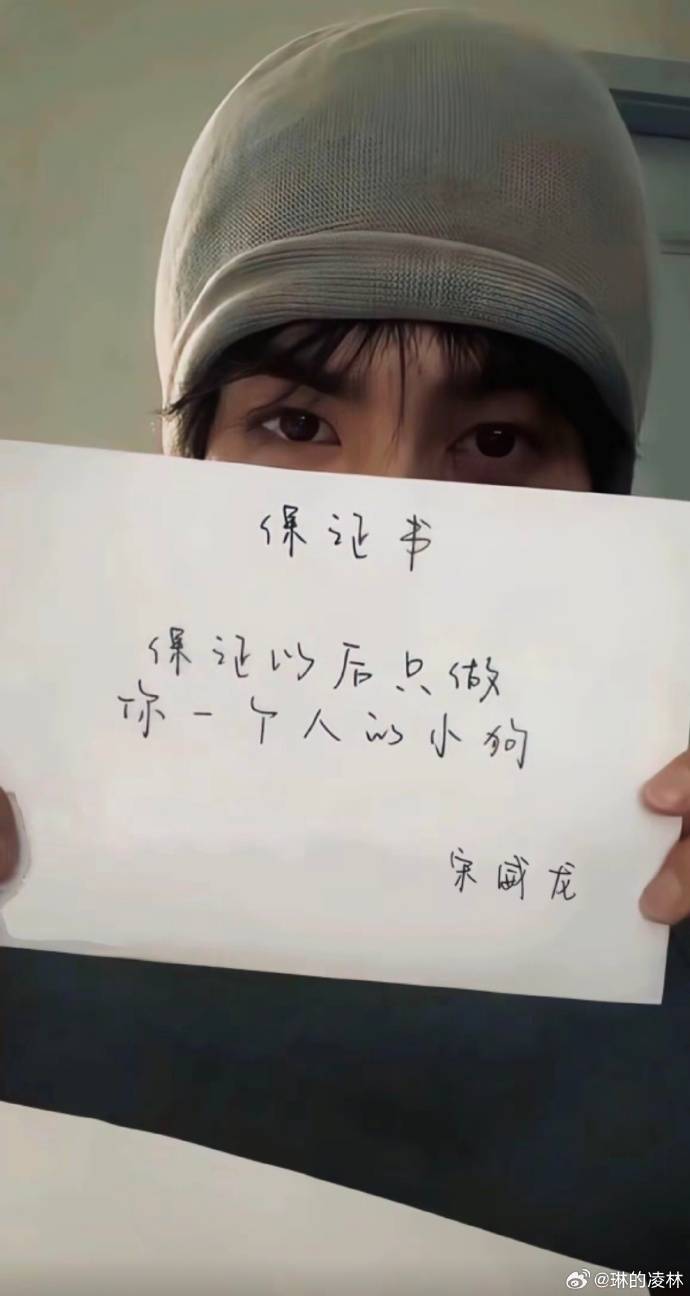 保证书
保证以后只做
你一个人的小狗
宋威龙
@琳的凌林